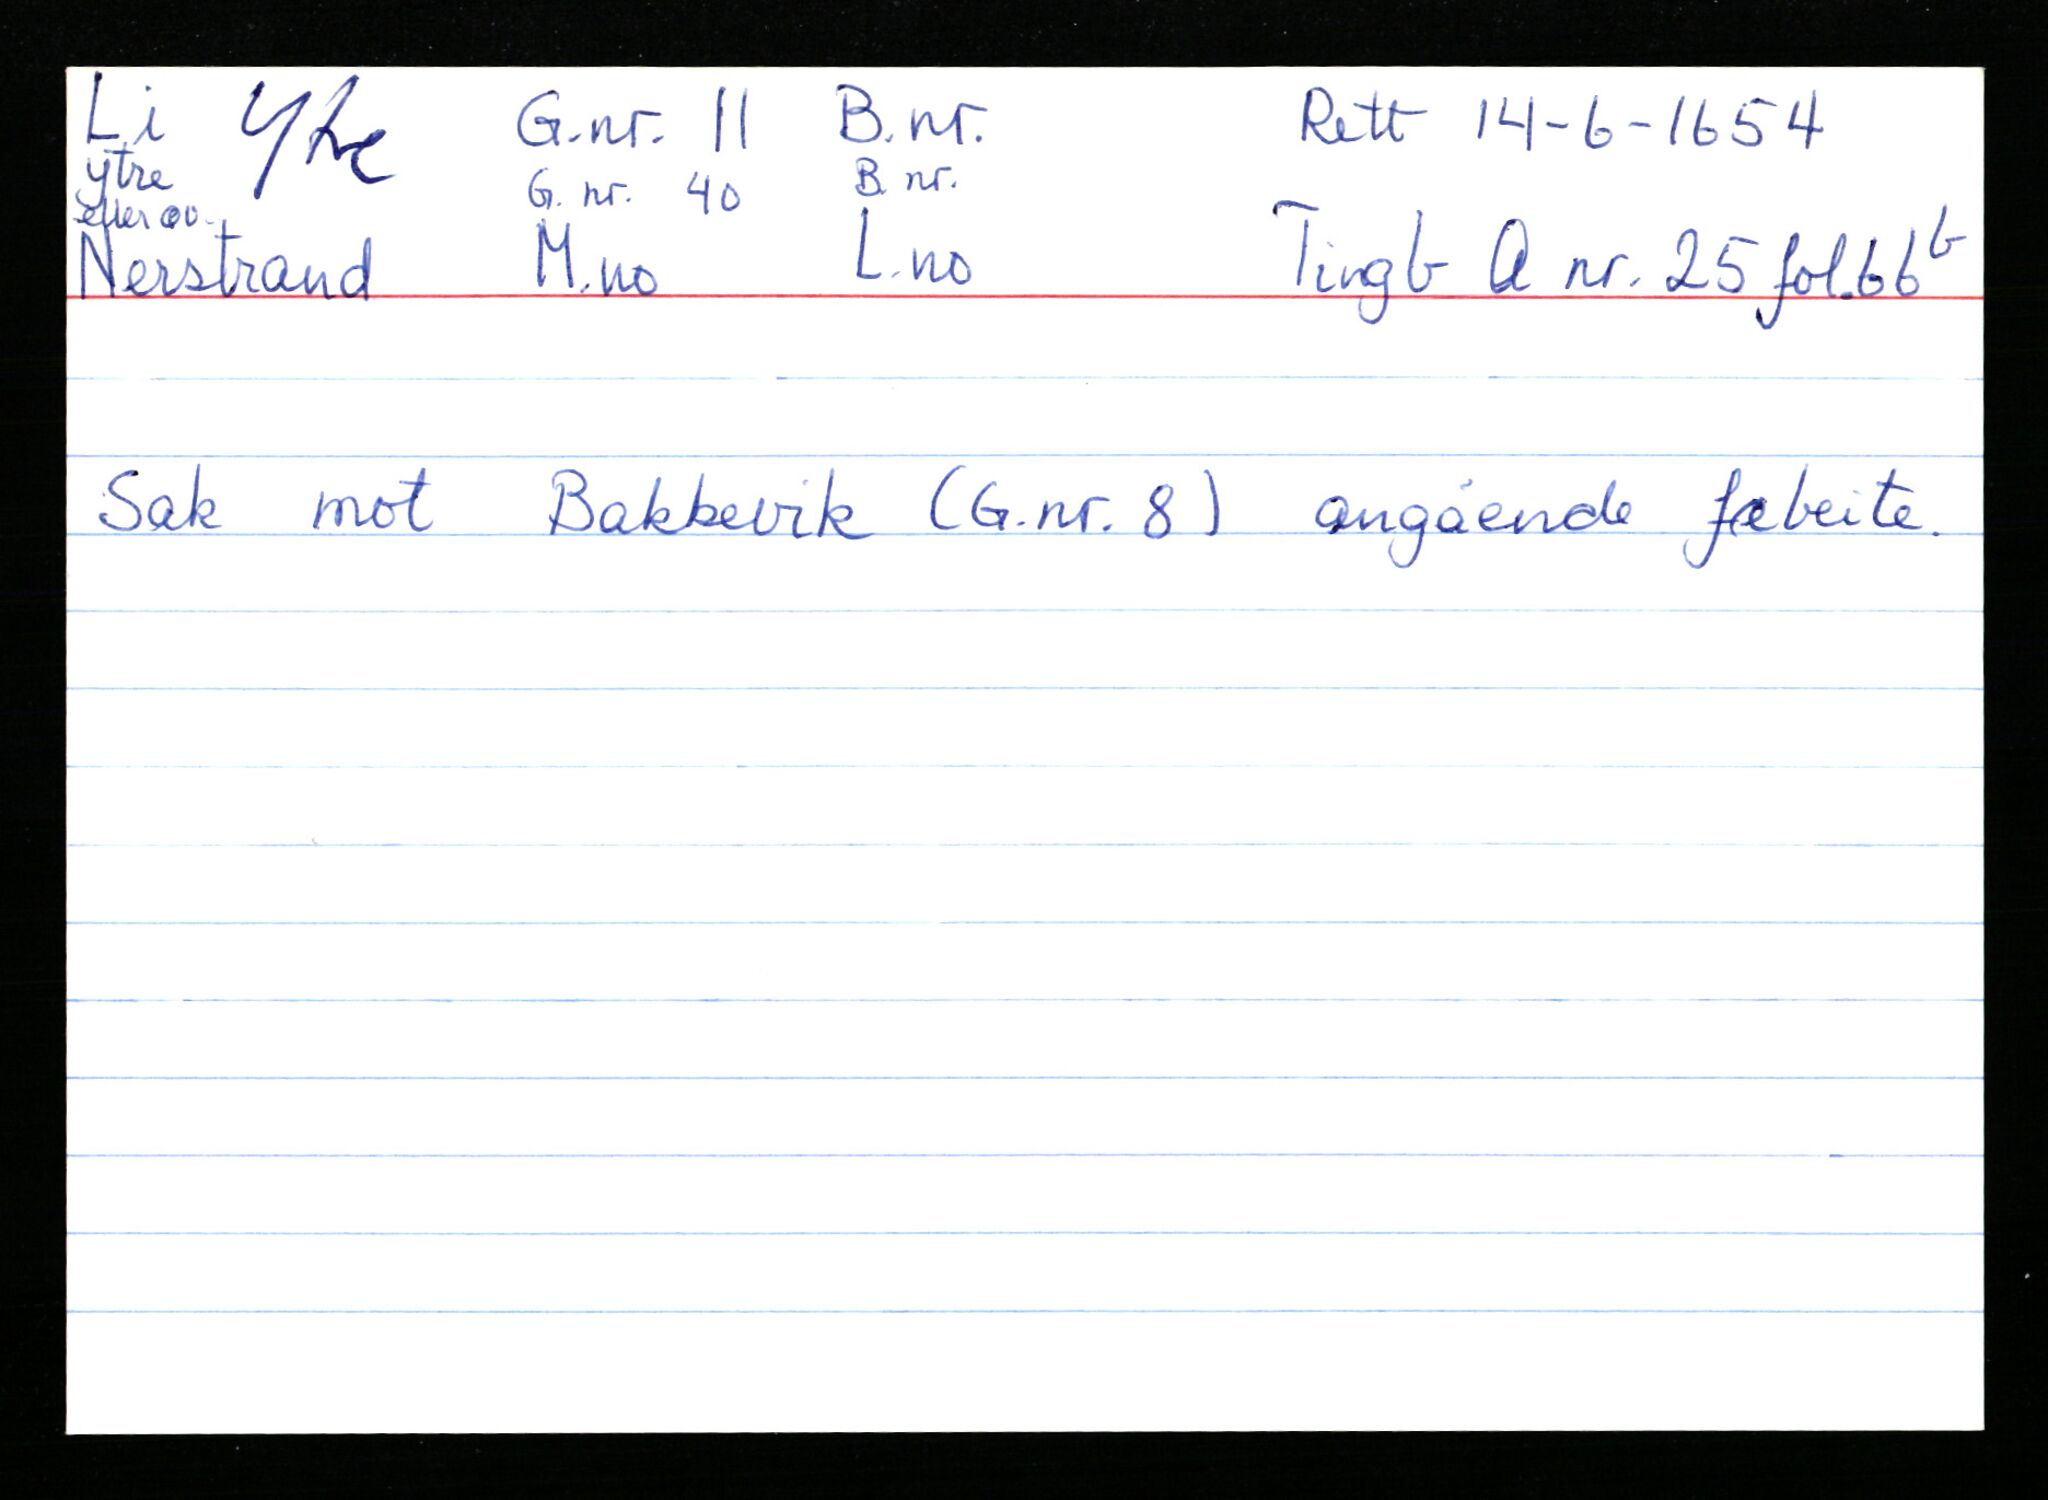 Li Ytre G.nr. 11 B.nr. Rett 14-6-1654
ytre G. nr. 40 B. nr.
eller øv.
Nerstrand M.no L.no Tingb A nr. 25 fol.66b
Sak mot Bakkevik (G.nr. 8) angående febeite.